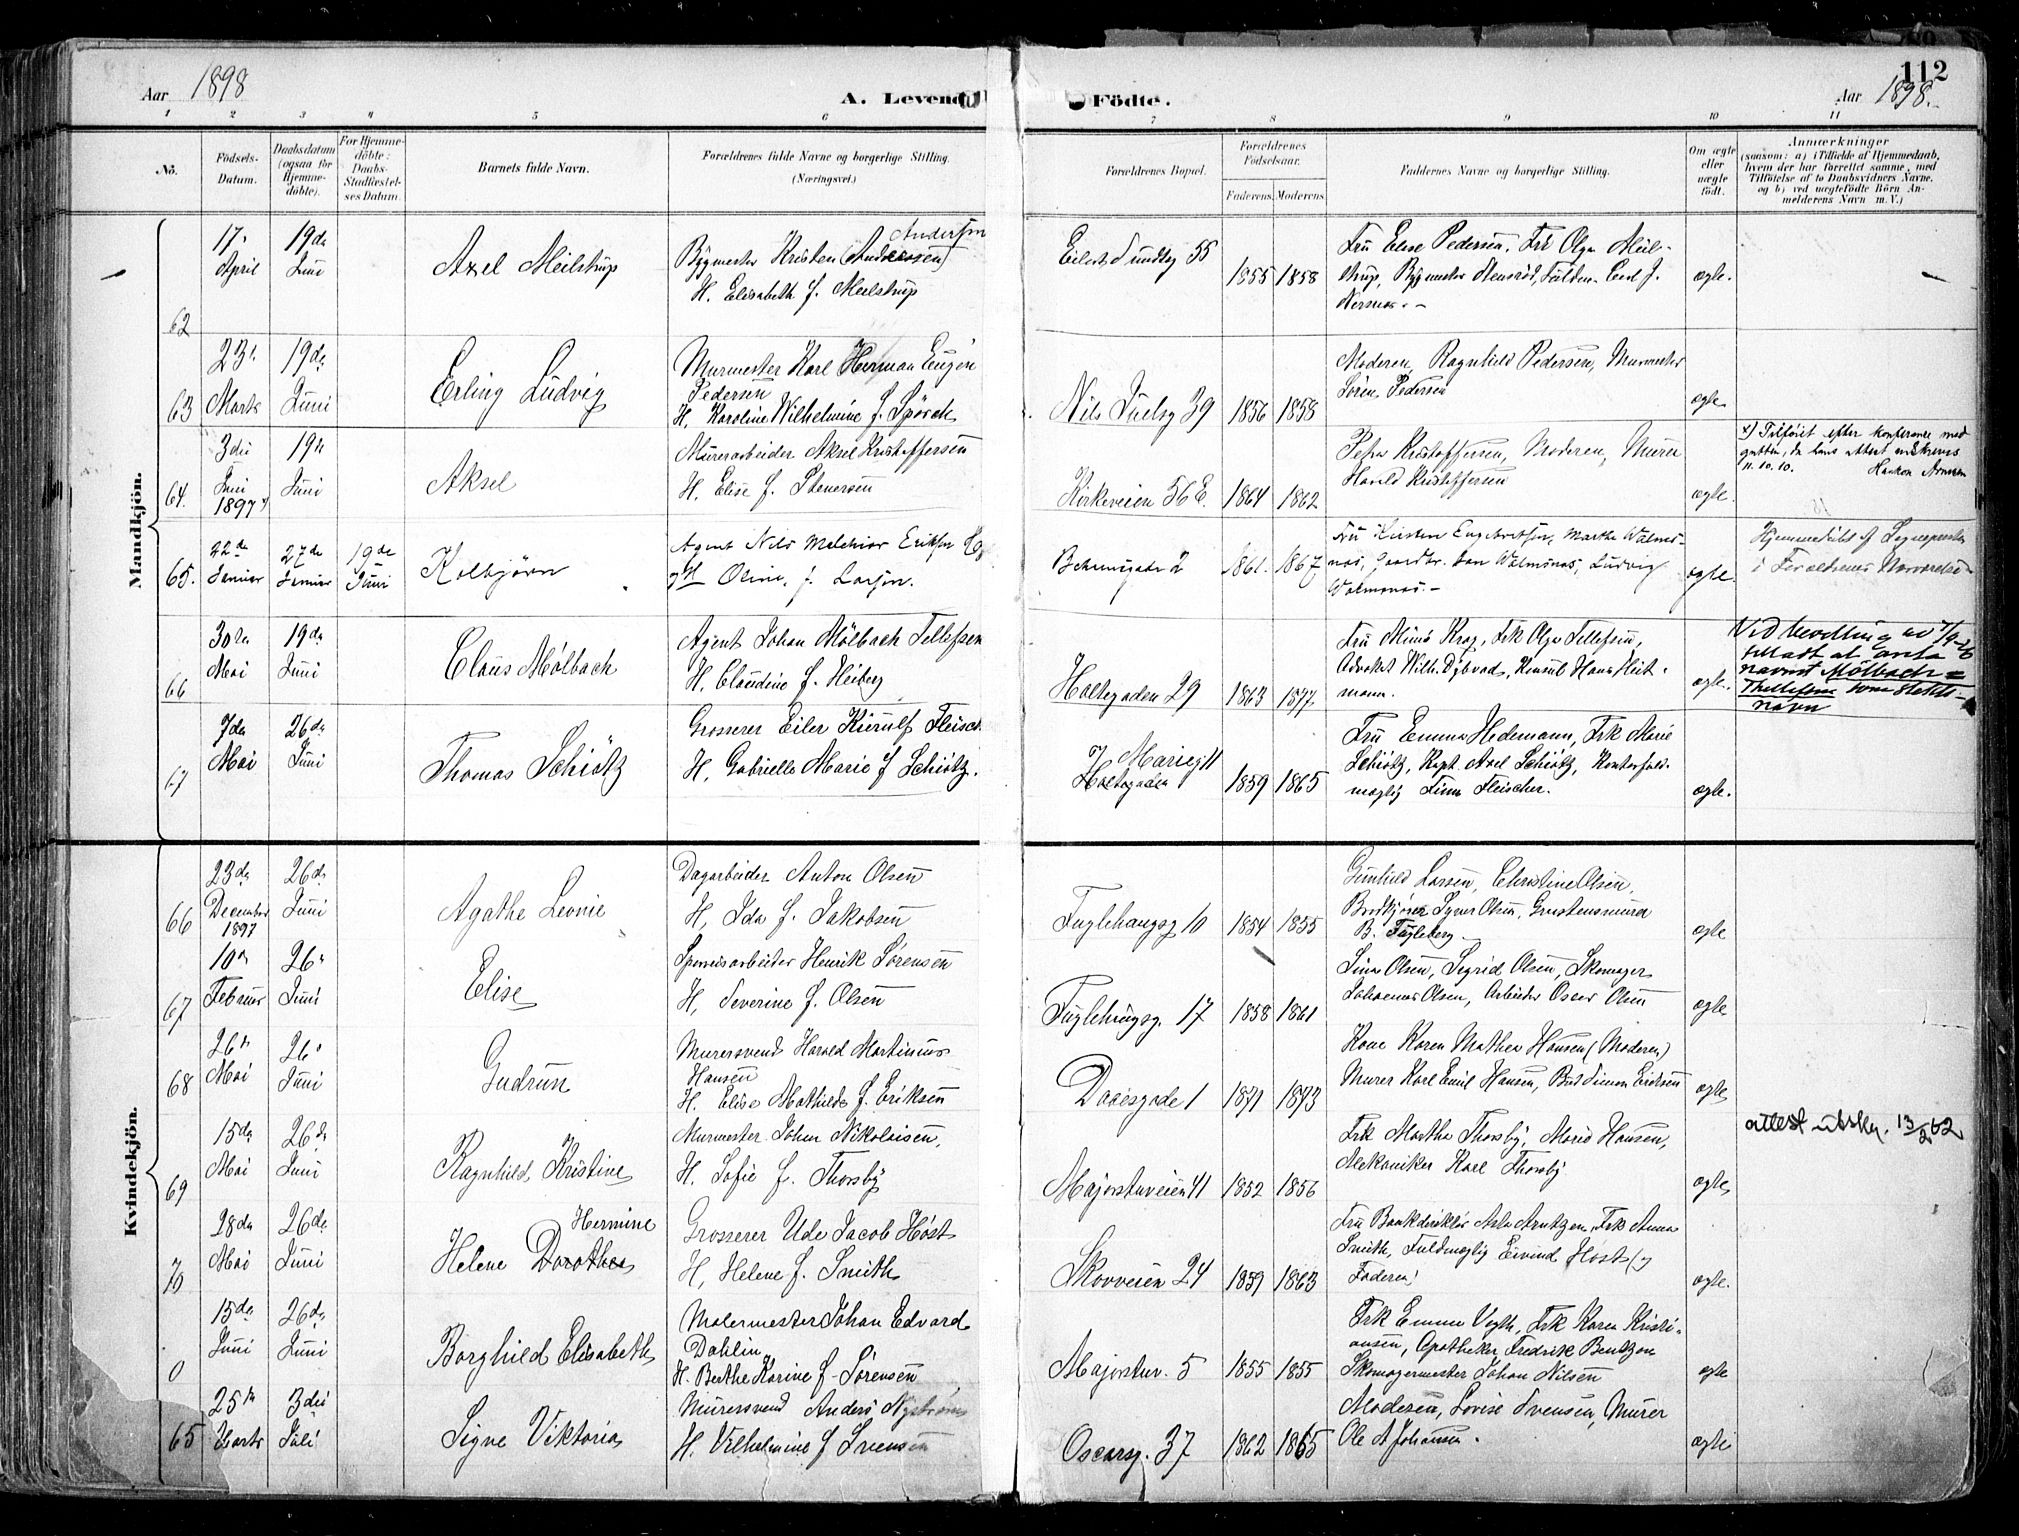 112
Aar 1898
A. Levende Födte.
Aar 1898.
1 2 3 4 5 6 7 8 9 10 11
No.
Födsels-Datum.
Daabsdatum (ogsaa for Hjemme-döbte).
For Hjemme-döbte: Daabs-Stadfæstel-ses Datum.
Barnets fulde Navn.
Forældrenes fulde Navne og borgerlige Stilling.
(Næringsvei.)
Forældrenes Bopæl.
Forældrenes Födselsaar.
Faderens. Moderens.
Faddernes Navne og borgerlige Stilling.
Om ægte eller uægte födt.
Anmærkninger
(saasom: a) i Tilfælde af Hjemmedaab, hvem der har forrettet samme, med Tilföielse af to Daabsvidners Navne, og b) ved uægtefödte Börn An-melderens Navn m. V.)
Mandkjön.
62 17. April 19de Juni
Axel Meilstrup
Andersen
Bygmester Kristen (Andreassen)
H. Elisabeth f. Meilstrup
Eilert Sundtsg 55
1855 1858
Fru Elise Pedersen, Frk Olga Meil-
strup, Bygmester
ægte.
63 23. Marts 19de Juni
Erling Ludvig
Murmester Karl Herman Eugen
Pedersen
H. Karoline Wilhelmine f. Spörck
Nils Juelsg 39
1856 1858
Moderen, Ragnhild Pedersen, Murmester
Sören Pedersen
ægte
64. 3die Juni 1897 x) 19de Juni
Aksel
Murerarbeider Aksel Kristoffersen
H. Elise f. Stenersen
Kirkeveien 56 E.
1864 1862
Petra Kristoffersen, Moderen, Murer
Harald Kristoffersen
ægte.
x) Tilföiet efter konferance med
gutten, da hans attest
11.10.10. Haakon
65. 22de Januar 27de Januar 19de Juni
Kolbjørn
Agent Nils Melchior Eriksen
H Oline f. Larsen.
Behrensgade 2
1861. 1867
Fru Kirsten Engebretsen, Marthe Walmes-
næs, Gaardbr. Walmsnæs, Ludvig
Walmsnæs. -
ægte.
Hjemmedöbt af Sognepresten
i Forældrenes Nærværelse
66 30te Mai 19de Juni
Claus Mölbach
Agent Johan Mölbach Tellefsen
H. Claudine f. Heiberg
Holtegaden 29
1863 1877.
Fru Mimi Krag, Frk Olga Tellefsen,
Advokat Wilh. Dybwad, Konsul Hans Heit-
mann.
ægte.
Ved bevilling av 7/9-26
tillatt at anta
navnet Mölbach-
Thellefsen som slekts-
navn
67 7de Mai 26de Juni
Thomas Schiötz
Grosserer Eiler Kierulf Fleisch
H. Gabrielle Marie f Schiötz.
J Mariegt
Holtegaden
1859 1865
Fru Emma Hedemann, Frk Marie
Schiötz, Kapt. Axel Schiötz, Kontorfuld-
mægtig Finn Fleischer.
ægte.
Kvindekjön.
66 23de December 1897 26de Juni
Agathe Leonie
Dagarbeider Anton Olsen
H, Ida f. Jakobsen
Fuglehaugsg 10
1854 1855
Gunhild Larsen, Christine Olsen,
Brødkjører Olsen,
B. Fugleberg.
ægte
67 10de Februar 26de Juni
Elise
Henrik Sørensen
H, Severine f. Olsen
Fuglehaugsg. 17
1858 1861
Lina Olsen, Sigrid Olsen, Skomager
Johannes Olsen, Arbeider Oscar Olsen
ægte
68 26de Mai 26de Juni
Gudrun
Murersvend Harald Martinius
Hansen
H. Elise Mathilde f. Eriksen
Daaesgade 1
1871 1873
Kone Karen Mathea Hansen (Moderen)
Murer Karl Emil Hansen, Simon Eriksen
ægte
69 15de Mai 26de Juni
Ragnhild Kristine
Murmester Johan Nikolaisen,
H. Sofie f. Thorsby
Majorstuveien 41
1852 1856
Frk Martha Thorsby, Marie Hansen,
Mekaniker Karl Thorsby
ægte
attest utskr. 13/2 62
70 28de Mai 26de Juni
Hermine
Helene Dorothea
Grosserer Ude Jacob Høst
H, Helene f. Smith
Skovveien 24
1859 1863
Fru Bankdirektör Arntzen, Frk Anna
Smith, Fuldmægtig Eivind Høst (og
Faderen)
ægte.
0 15de Juni 26de Juni
Borghild Elisabeth
Malermester Johan Edvard
Dahlin
H. Berthe Karine f. Sørensen
Majorstuv. 5
1855 1855
Frk Emma Vogth, Frk Karen Kristi-
ansen, Apotheker Fredrik Bentzon
Skomagermester Johan Nilsen
ægte
65 25de Marts 3die Juli
Signe Viktoria
Murersvend Anders Nyström
H. Vilhelmine f Svensen
Oscarsg. 37
1862 1865
Moderen, Lovise Svensen, Murer
Ole A Johansen.
ægte